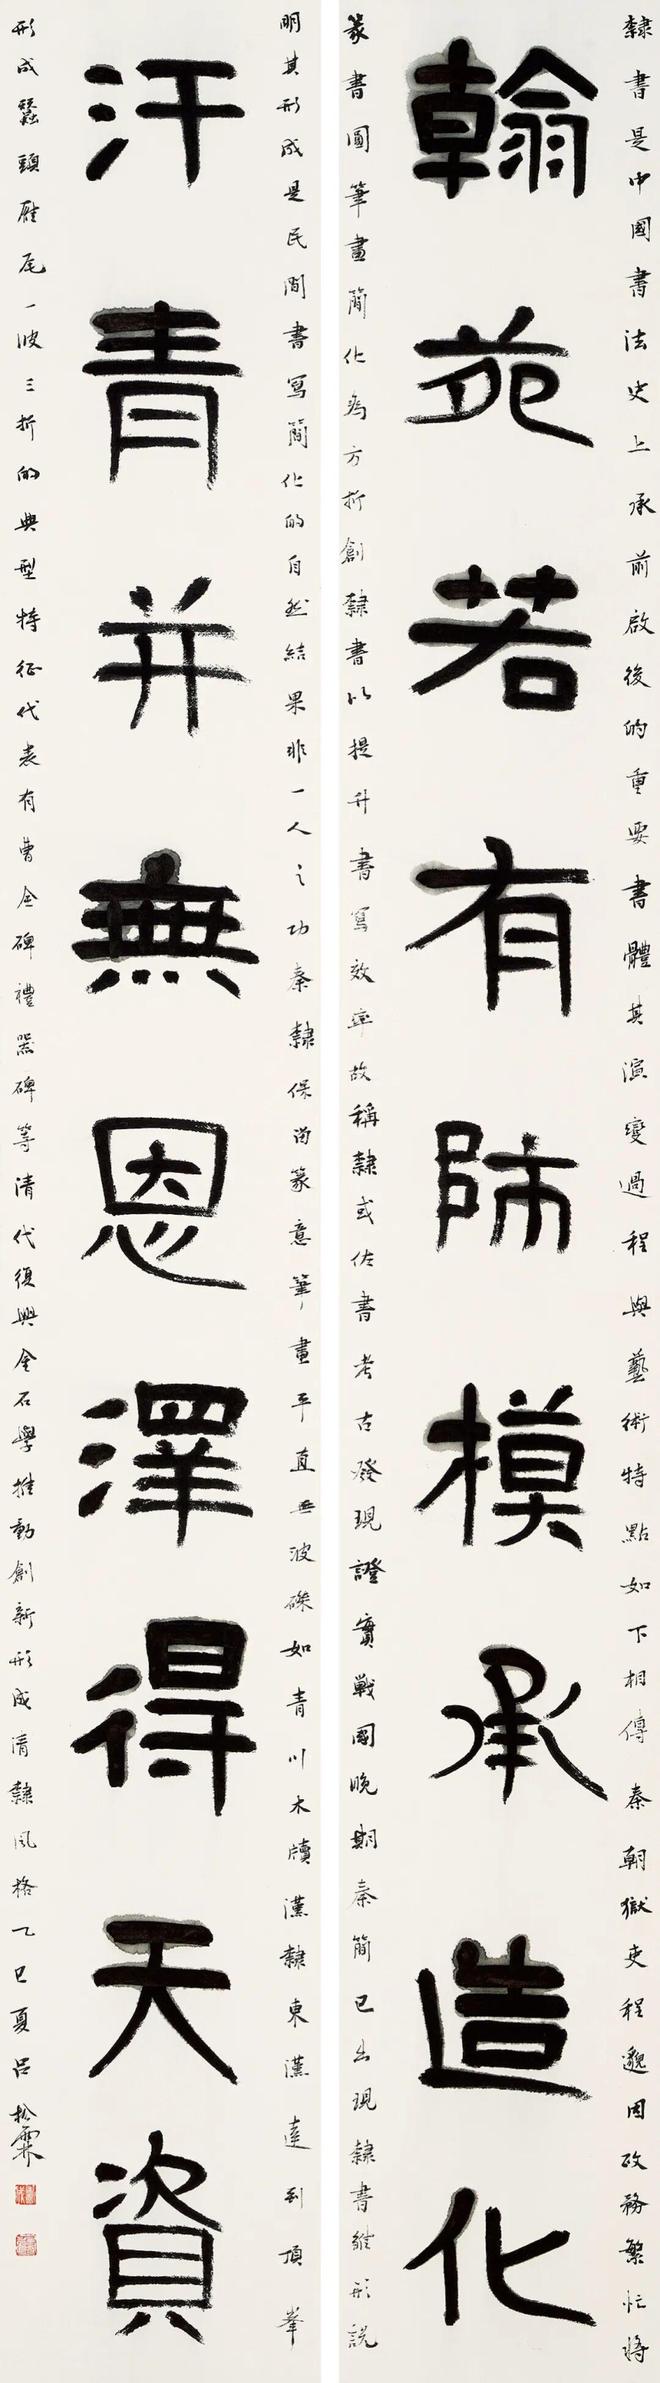 隸書是中國書法史上承前啟後的重要書體其演變過程與藝術特點如下相傳秦朝獄吏程邈因政務繁忙將
翰苑若有師模承造化
篆書圓筆畫簡化為方折創隸書以提升書寫效率故稱隸或佐書考古發現證實戰國晚期秦簡已出現隸書雛形說
明其形成是民間書寫簡化的自然結果非一人之功秦隸保留篆意筆畫平直無波磔如青川木牘漢隸東漢達到頂峯
汗青并無恩澤得天資
形成蠶頭雁尾一波三折的典型特征代表有曹全碑禮器碑等清代復興金石學推動創新形成清隸風格乙巳夏呂松霖